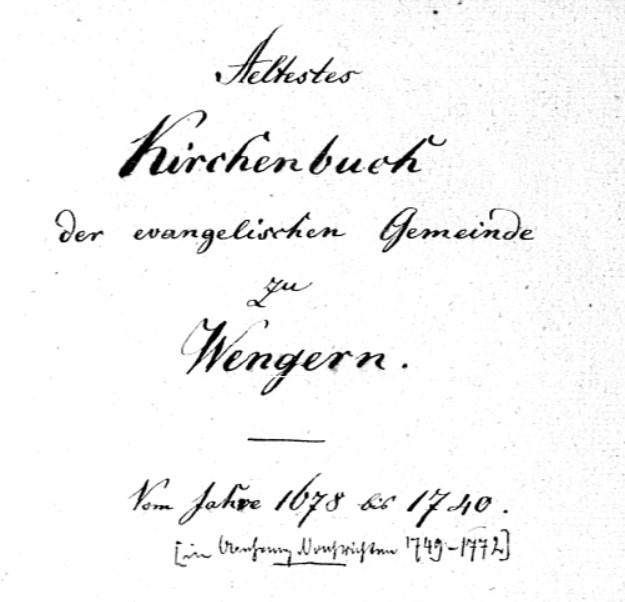 Aeltestes
Kirchenbuch
der evangelischen Gemeinde
zu
Wengern.
Vom Jahre 1678 bis 1740.
[in Anhang Nachrichten 1749-1772]